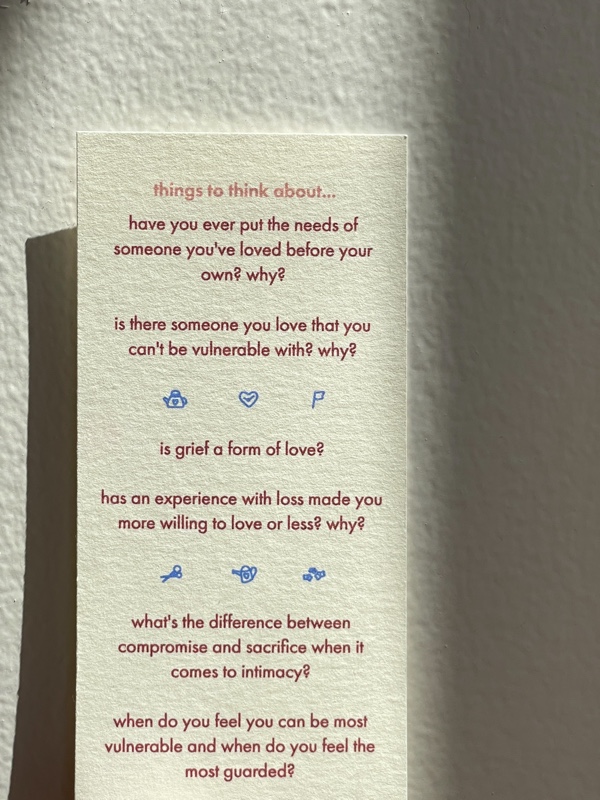 things to think about...
have you ever put the needs of
someone you've loved before your
own? why?
is there someone you love that you
can't be vulnerable with? why?
is grief a form of love?
has an experience with loss made you
more willing to love or less? why?
what's the difference between
compromise and sacrifice when it
comes to intimacy?
when do you feel you can be most
vulnerable and when do you feel the
most guarded?